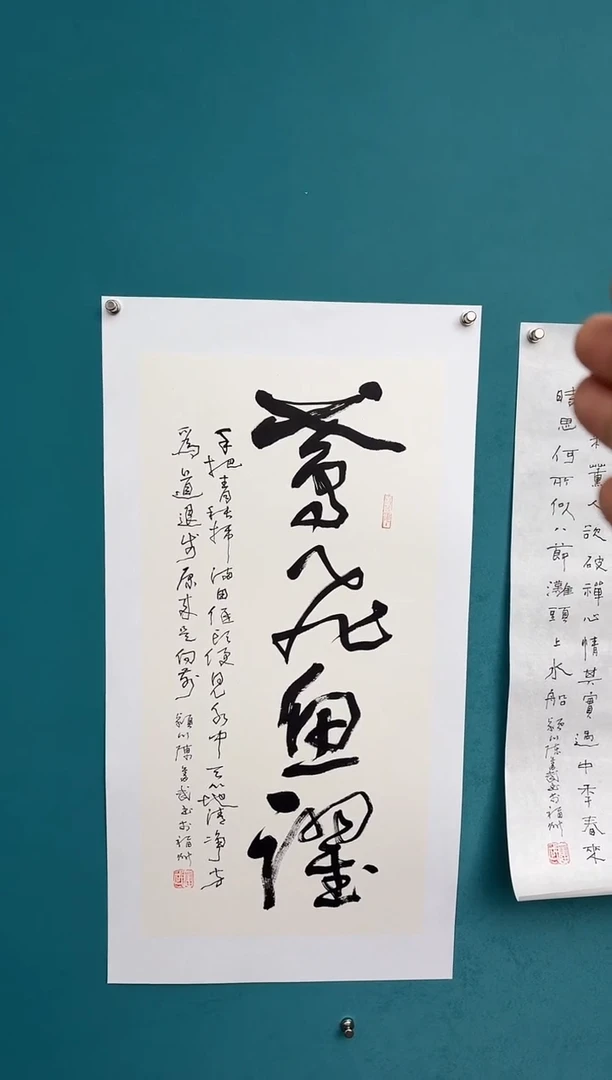 鳶飛魚躍
手把青秧插滿田低頭便見水中天心地清淨方
為道退步原來是向前 穎川陳書於福州
薰人欲破禪心情其實過中年春來
思何所似八節灘頭上水船 穎川陳書於福州